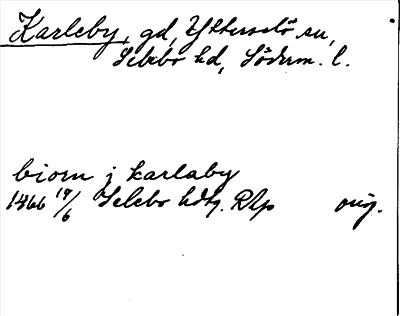 Karleby, gd, Ytterselö sn,
Selebo hd, Söderm. l.
biorn j karlaby
1466 17/6 Selebo hdtg. RAp orig.